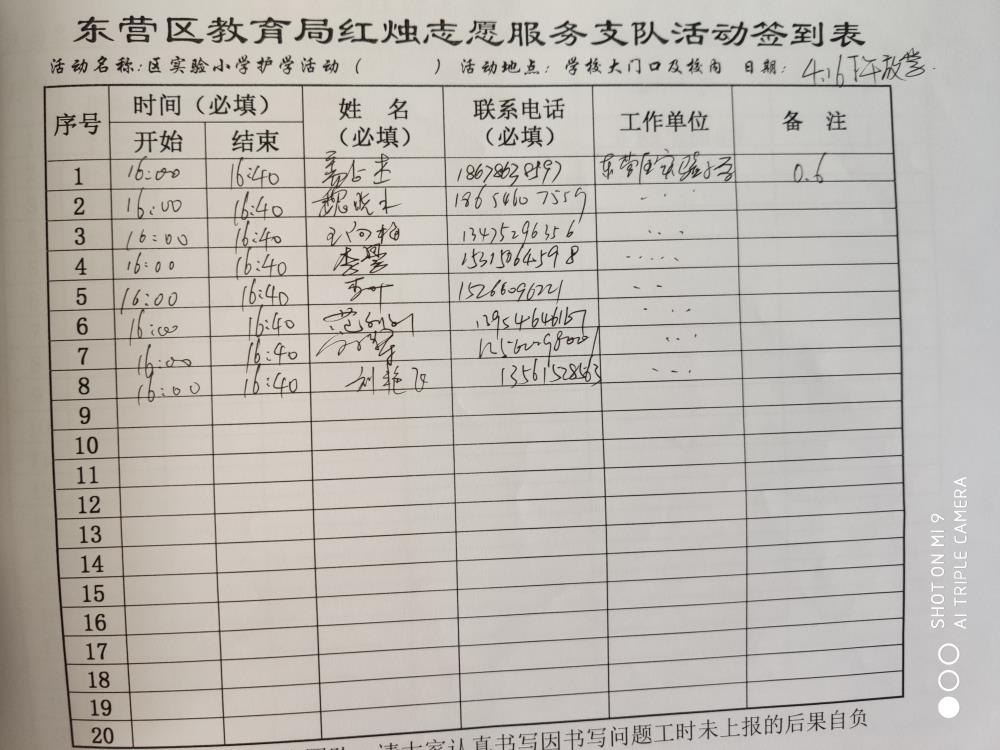 东营区教育局红烛志愿服务支队活动签到表
活动名称:区实验小学护学活动( ) 活动地点:学校大门口及校内 日期: 4.16下午放学.
序号 时间(必填) 姓名(必填) 联系电话(必填) 工作单位 备注
开始 结束
1 16:00 16:40 18678638597 东营区实验小学 0.6
2 16:00 16:40 魏晓 18654607559
3 16:00 16:40 13475296356
4 16:00 16:40 李 15315064598
5 16:00 16:40 15266096221
6 16:00 16:40 范 13954646157
7 16:00 16:40
8 16:00 16:40 刘艳飞 13561528563
9
10
11
12
13
14
15
16
17
18
19
20
请大家认真书写因书写问题工时未上报的后果自负
SHOT ON MI 9
AI TRIPLE CAMERA